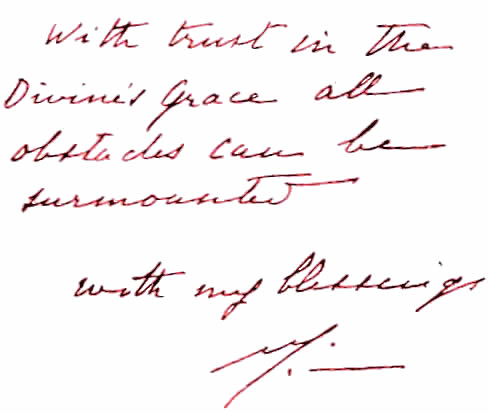 With trust in the
Divine's Grace all
obstacles can be
surmounted
with my blessings